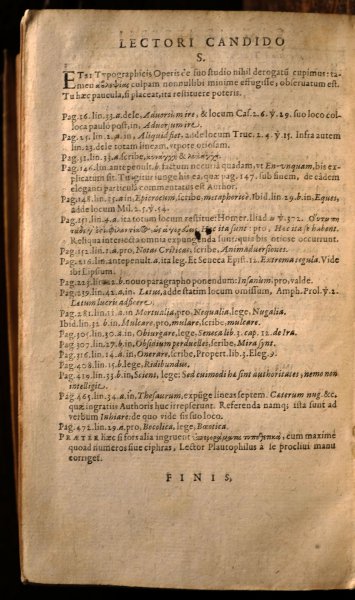 LECTORI CANDIDO
S.
ETSI Typographicis Operis è suo studio nihil derogatũ cupimus: ta-
men culpam nonnullibi minime effugisse, observatum est.
Tu hæc paucula, si placeat, ita restituere poteris.
Pag. 16. lin. 33. a. dele, Adversum ire, & locum Cas. 2. 6. ỳ. 29. suo loco col-
loca paulò post, in, Adversum ire.
Pag. 25. lin. 2. a. in, Aliquid fiet. adde locum Truc. 2. 4. ỳ. 15. Infra autem
lin. 23. dele totam lineam, utpote otiosam.
Pag. 31. lin. 33. a. scribe,
Pag. 146. lin. antepenult. b. factum incuria quadam, ut En-unquam, bis ex-
plicatum sit. Tu igitur iunge his ea, quæ pag. 147. sub finem, de eâdem
eleganti particula commentatus est Author.
Pag. 148. lin. 25. a. in, Epicrocum, scribe, metaphoricè. Ibid. lin. 29. b. in, Eques,
adde locum Mil. 2. 5. ỳ. 54.
Pag. 151. lin. 4. a. ita totum locum restitue: Homer. Iliad
Hæc ita sunt: pro, Hæc ita se habent.
Reliqua interiecta omnia expungenda sunt, quia bis otiose occurrunt.
Pag. 152. lin. 1. a. pro, Notas Criticas, scribe, Animadversiones.
Pag. 216. lin. antepenult. a. ita leg. Et Seneca Epist. 12. Extrema regula. Vide
ibi Lipsum.
Pag. 223. lin. 12. b. novo paragrapho ponendum: Insanum, pro, valde.
Pag. 239. lin. 42. in, Latus, adde statim locum omissum, Amph. Prol. ỳ. 2.
Latum lucris adficere.
Pag. 281. lin. 11. a. in Mortualia, pro, Nequalia, lege, Nugalia.
Ibid. lin. 32. b. in, Mulcare, pro, mulare, scribe, mulcare.
Pag. 301. lin. 30. a. in, Obiurgare, lege, Seneca lib. 3. cap. 12. de Ira.
Pag. 307. lin. 27. b. in, Obsidium perduelles, scribe, Mira sunt.
Pag. 316. lin. 14. a. in, Onerare, scribe, Propert. lib. 3. Eleg. 9.
Pag. 408. lin. 13. b. lege, Ridibundus.
Pag. 419. lin. 33. b. in, Scient, lege: Sed euimodi hæ sint authoritates, nemo non
intelligit.
Pag. 463. lin. 34. a. in, Thesaurum, expũge lineas septem. Cæterum nug. &c.
quæ ingratiis Authoris huc irrepserunt. Referenda namq; ista sunt ad
verbum Inhiare: de quo vide si suo loco.
Pag. 472. lin. 29. a. pro, Bocolica, lege, Bœotica.
PRÆTER hæc si fors alia ingruent cum maximè
quoad numeros sive ciphras, Lector Plautophilus à se proclivi manu
corriget.
FINIS,